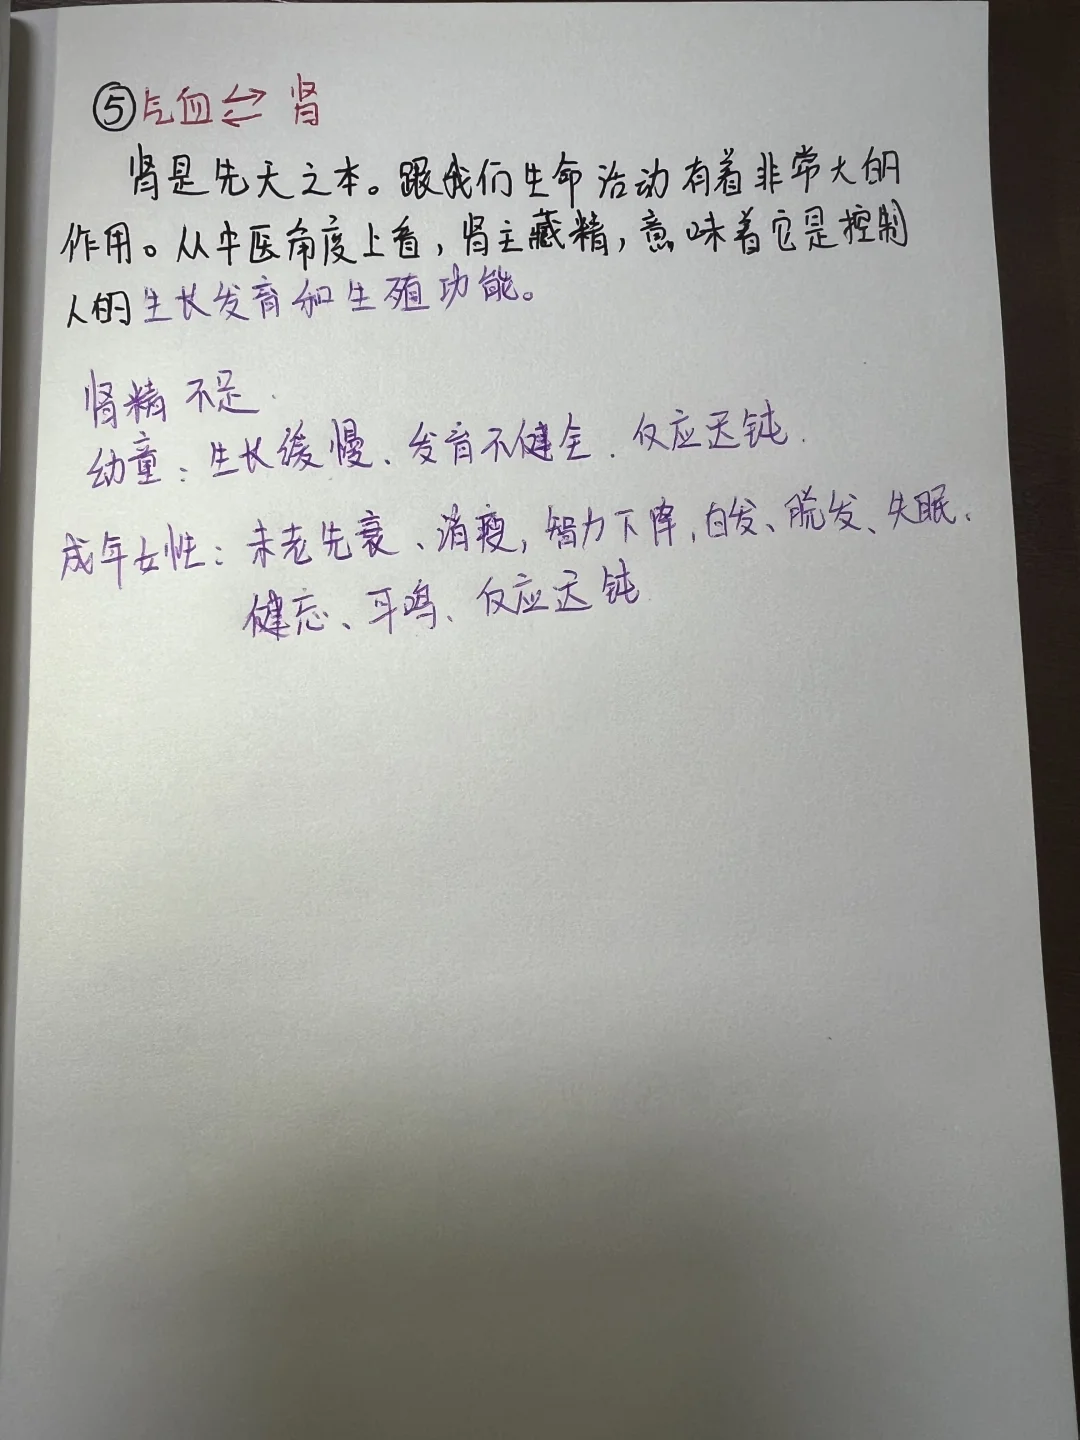 ⑤气血⇌肾
肾是先天之本。跟我们生命活动有着非常大的
作用。从中医角度上看,肾主藏精,意味着它是控制
人的生长发育和生殖功能。
肾精不足.
幼童:生长缓慢、发育不健全.反应迟钝.
成年女性:未老先衰、消瘦,智力下降,白发、脱发、失眠、
健忘、耳鸣、反应迟钝